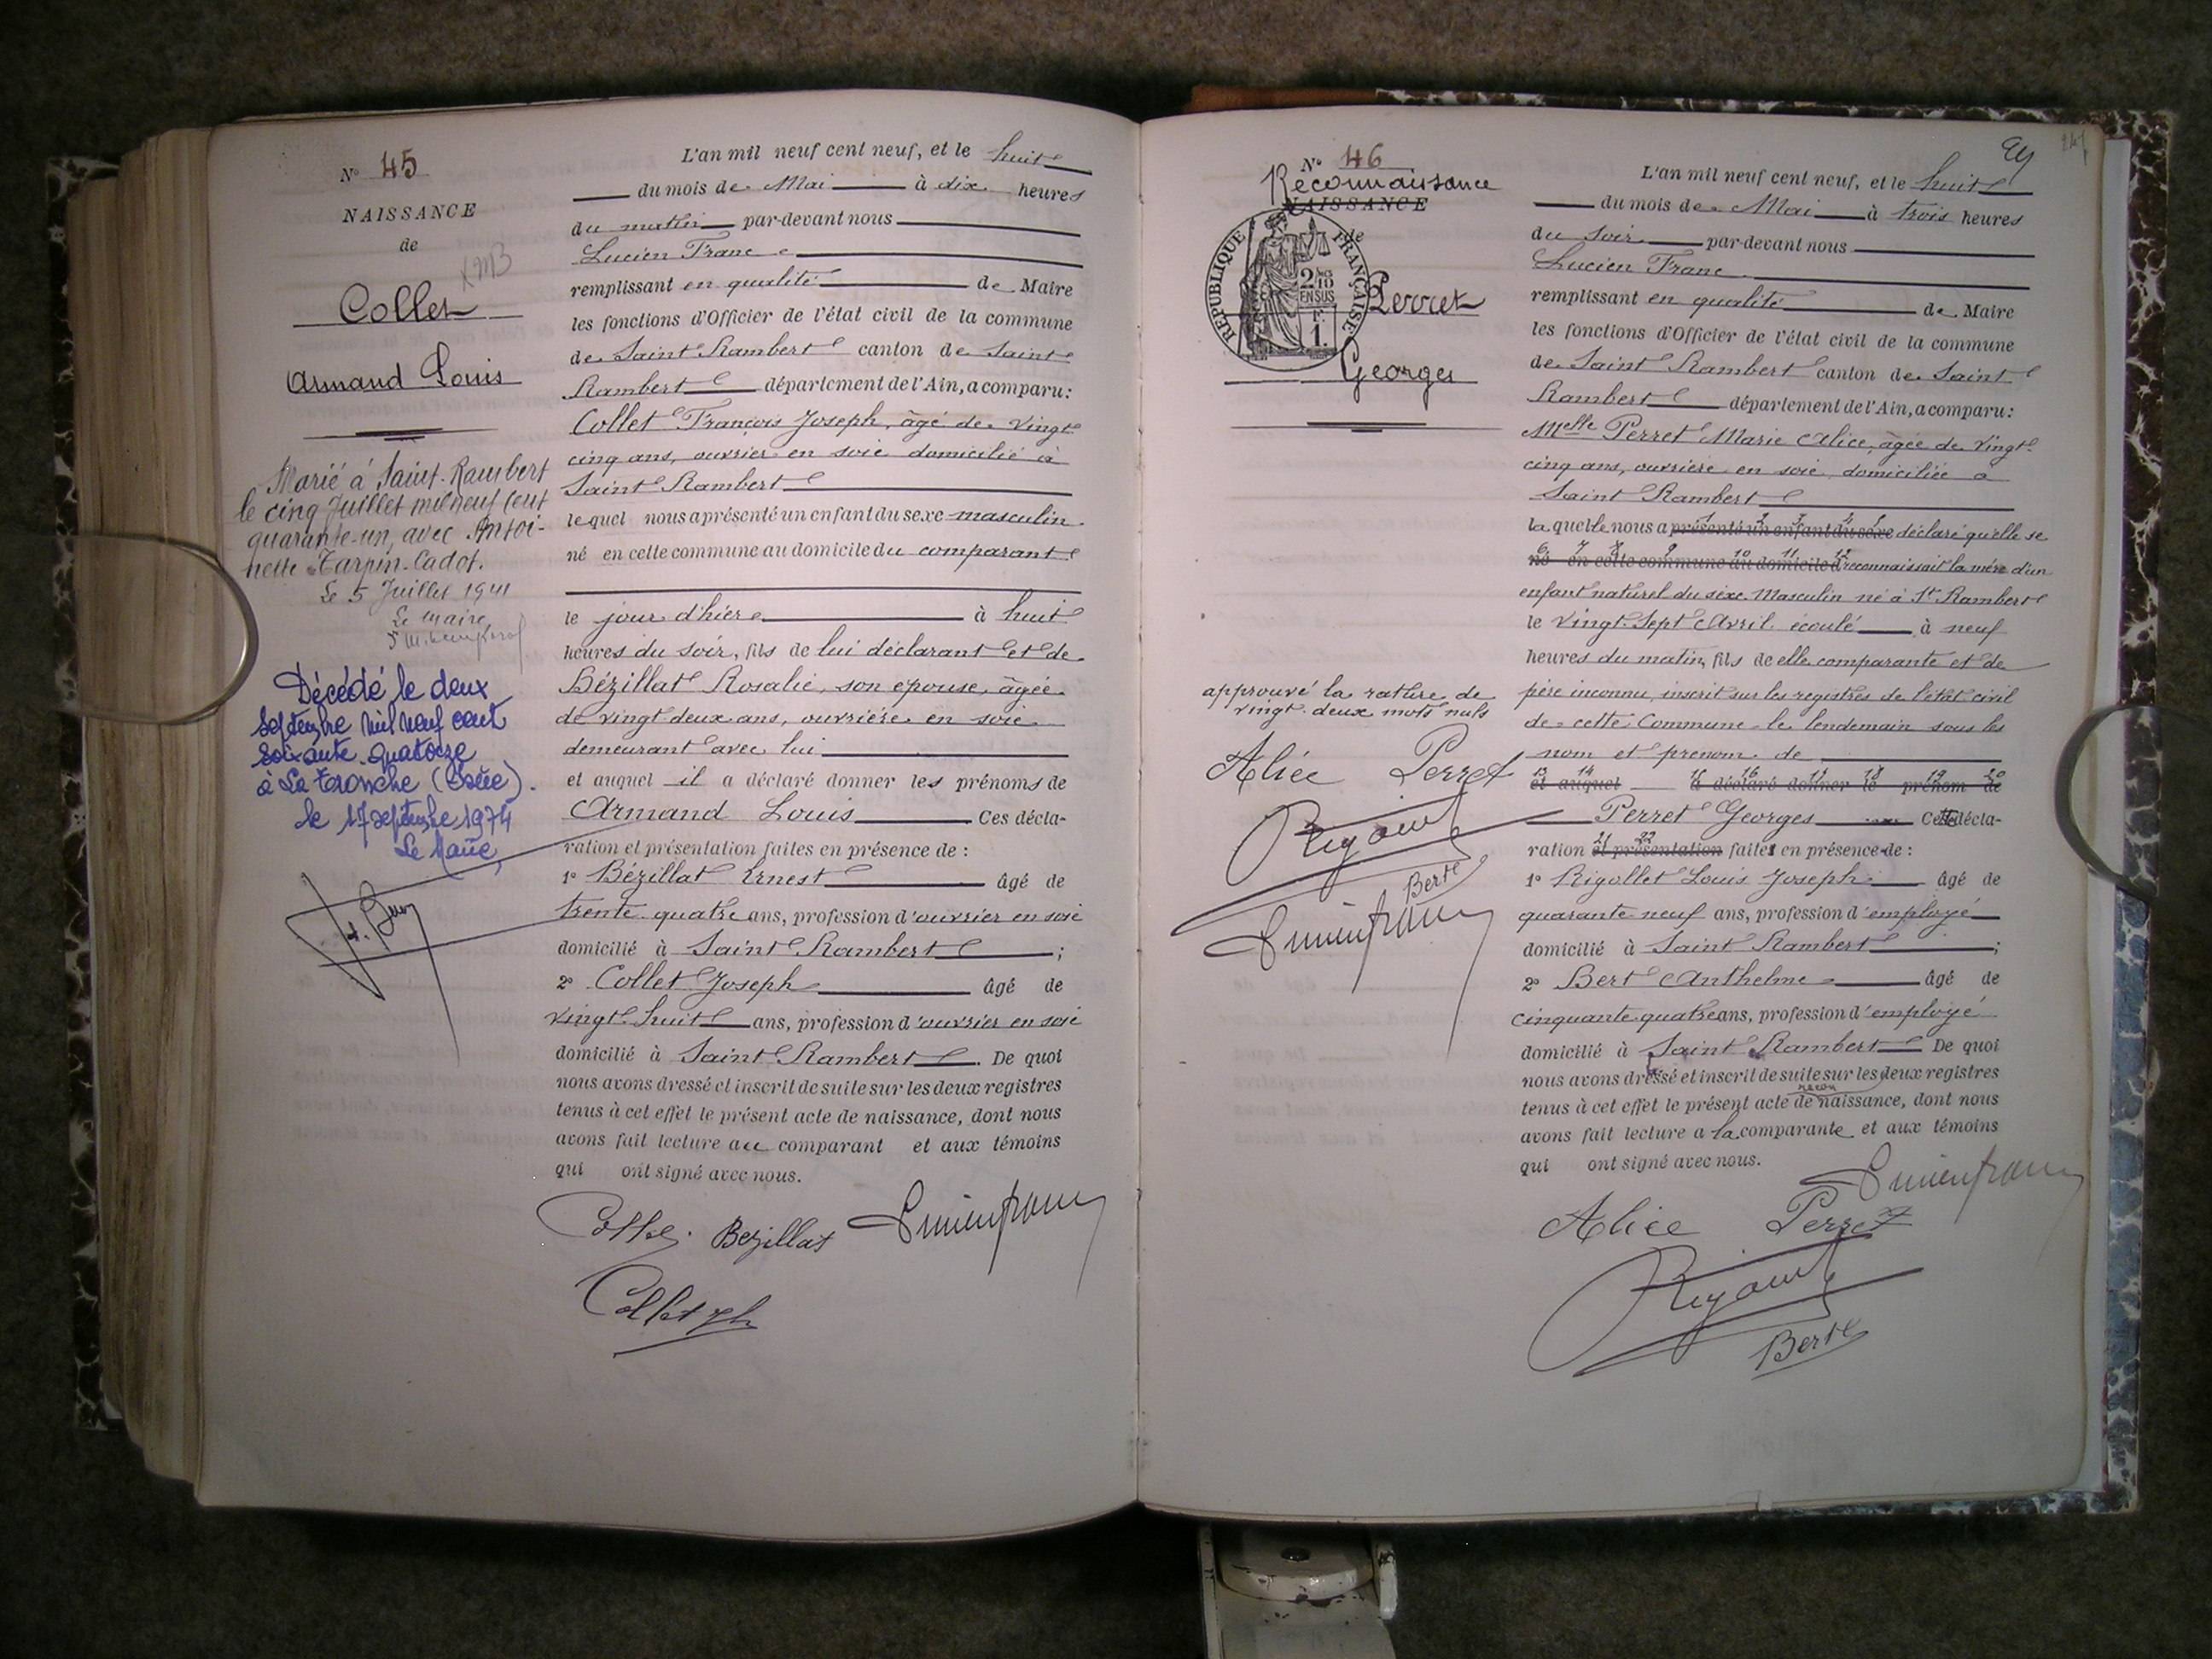 N° 45
NAISSANCE
de
Collet
Armand Louis
Marié à Saint-Rambert
le cinq Juillet mil neuf cent
quarante-un, avec Antoi-
nette Tarpin-Cadot.
Le 5 Juillet 1941
Le maire
Décédé le deux
septembre mil neuf cent
soixante-quatorze
à La Tronche (Isère).
le 17 septembre 1974
Le Maire,
L'an mil neuf cent neuf, et le huit
du mois de Mai à dix heures
du matin par-devant nous
Lucien Franc
remplissant en qualité de Maire
les fonctions d'Officier de l'état civil de la commune
de Saint Rambert canton de Saint
Rambert département de l'Ain, a comparu:
Collet François Joseph, âgé de vingt
cinq ans, ouvrier en soie domicilié à
Saint Rambert
lequel nous a présenté un enfant du sexe masculin
né en cette commune au domicile du comparant
le jour d'hier à huit
heures du soir, fils de lui déclarant et de
Bézillat Rosalie, son épouse, âgée
de vingt deux ans, ouvrière en soie
demeurant avec lui
et auquel il a déclaré donner les prénoms de
Armand Louis Ces décla-
ration et présentation faites en présence de :
1° Bézillat Ernest âgé de
trente quatre ans, profession d'ouvrier en soie
domicilié à Saint Rambert ;
2° Collet Joseph âgé de
vingt huit ans, profession d'ouvrier en soie
domicilié à Saint Rambert. De quoi
nous avons dressé et inscrit de suite sur les deux registres
tenus à cet effet le présent acte de naissance, dont nous
avons fait lecture au comparant et aux témoins
qui ont signé avec nous.
Collet Bezillat Lucien Franc
Collet Jh
24
N° 46
Reconnaissance
NAISSANCE
de
RÉPUBLIQUE FRANÇAISE
2/10
EN SUS
1.
Perret
Georges
approuvé la rature de
vingt-deux mots nuls
Alice Perret
Bert
Lucien Franc
L'an mil neuf cent neuf, et le huit
du mois de Mai à trois heures
du soir par-devant nous
Lucien Franc
remplissant en qualité de Maire
les fonctions d'Officier de l'état civil de la commune
de Saint Rambert canton de Saint
Rambert département de l'Ain, a comparu:
Melle Perret Marie Alice, âgée de vingt
cinq ans, ouvrière en soie, domiciliée à
Saint Rambert
laquelle nous a présenté un enfant du sexe déclaré qu'elle se
né en cette commune au domicile d reconnaissait la mère d'un
enfant naturel du sexe Masculin né à St Rambert
le vingt-sept Avril écoulé à neuf
heures du matin, fils de elle comparante et de
père inconnu, inscrit sur les registres de l'état civil
de cette Commune le lendemain sous les
nom et prénom de
13 14 15 16 17 18 19 20
et auquel a déclaré donner le prénom de
Perret Georges Cette décla-
21 22
ration et présentation faite en présence de :
1° Rigollet Louis Joseph âgé de
quarante neuf ans, profession d'employé
domicilié à Saint Rambert ;
2° Bert Anthelme âgé de
cinquante quatre ans, profession d'employé
domicilié à Saint Rambert De quoi
nous avons dressé et inscrit de suite sur les deux registres
recon
tenus à cet effet le présent acte de naissance, dont nous
avons fait lecture a la comparante et aux témoins
qui ont signé avec nous.
Lucien Franc
Alice Perret
Bert